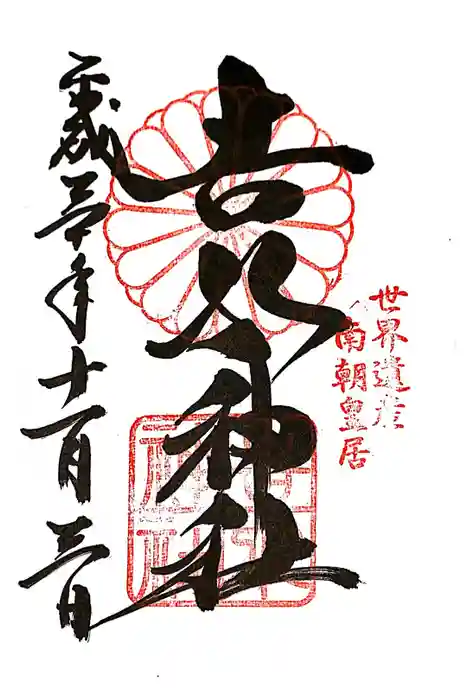 世界遺産
南朝皇居
吉水神社
平成三十年十一月三日